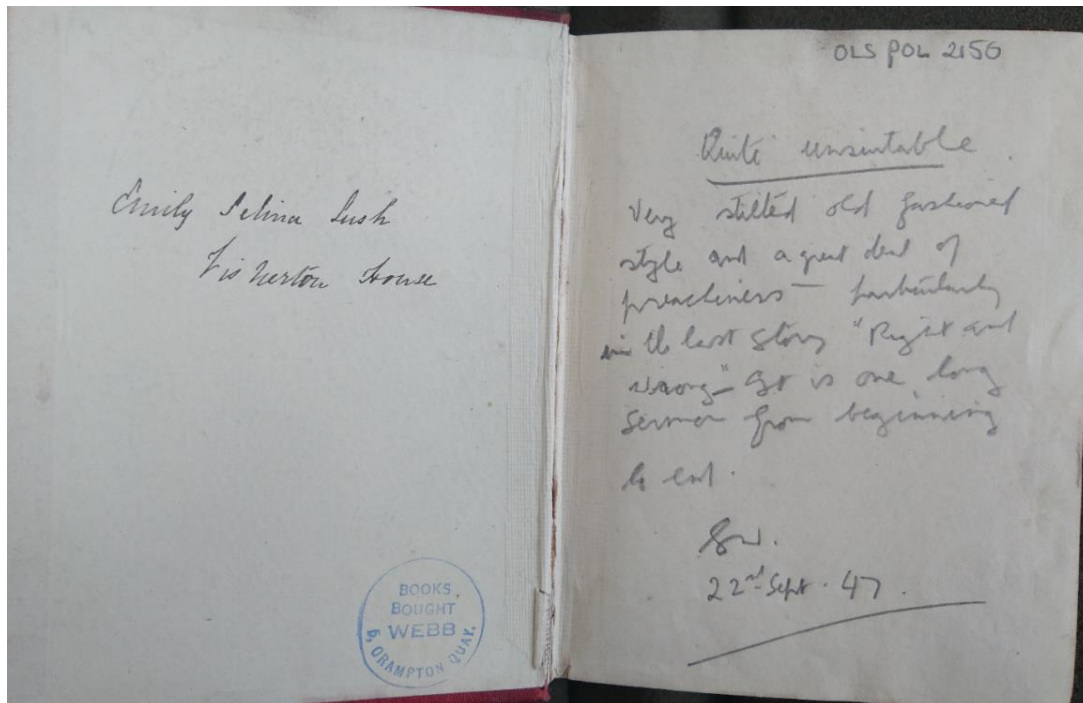 Emily Selina Lush
Fisherton House
BOOKS
BOUGHT
WEBB
5, CRAMPTON QUAY.
OLS POL 2156
Quite unsuitable
Very stilted old fashioned
style and a great deal of
preachiness – particularly
in the last story "Right and
Wrong" – It is one long
Sermon from beginning
to end.
22nd Sept. 47.